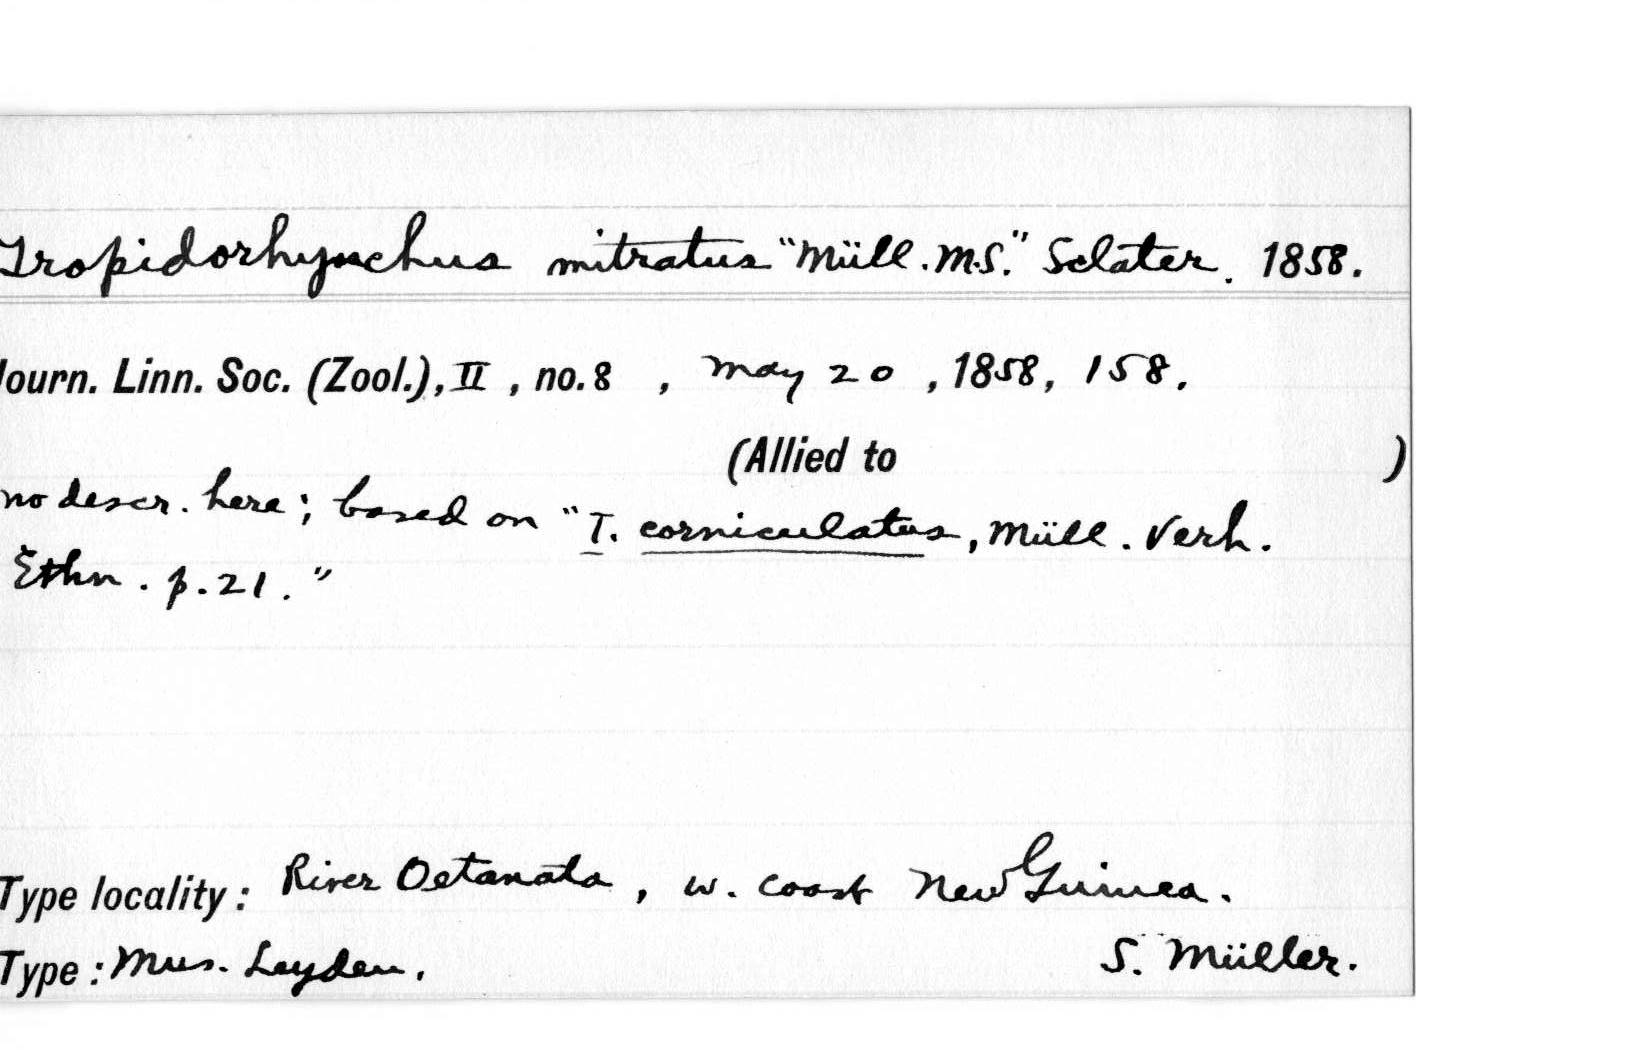 Tropidorhynchus mitratus "Müll. MS." Sclater. 1858.
Journ. Linn. Soc. (Zool.), II, no. 8, May 20, 1858, 158.
(Allied to )
no descr. here; based on "T. corniculatus, Müll. Verh.
Ethn. p. 21."
Type locality: River Oetanata, w. coast New Guinea.
Type: Mus. Leyden. S. Müller.